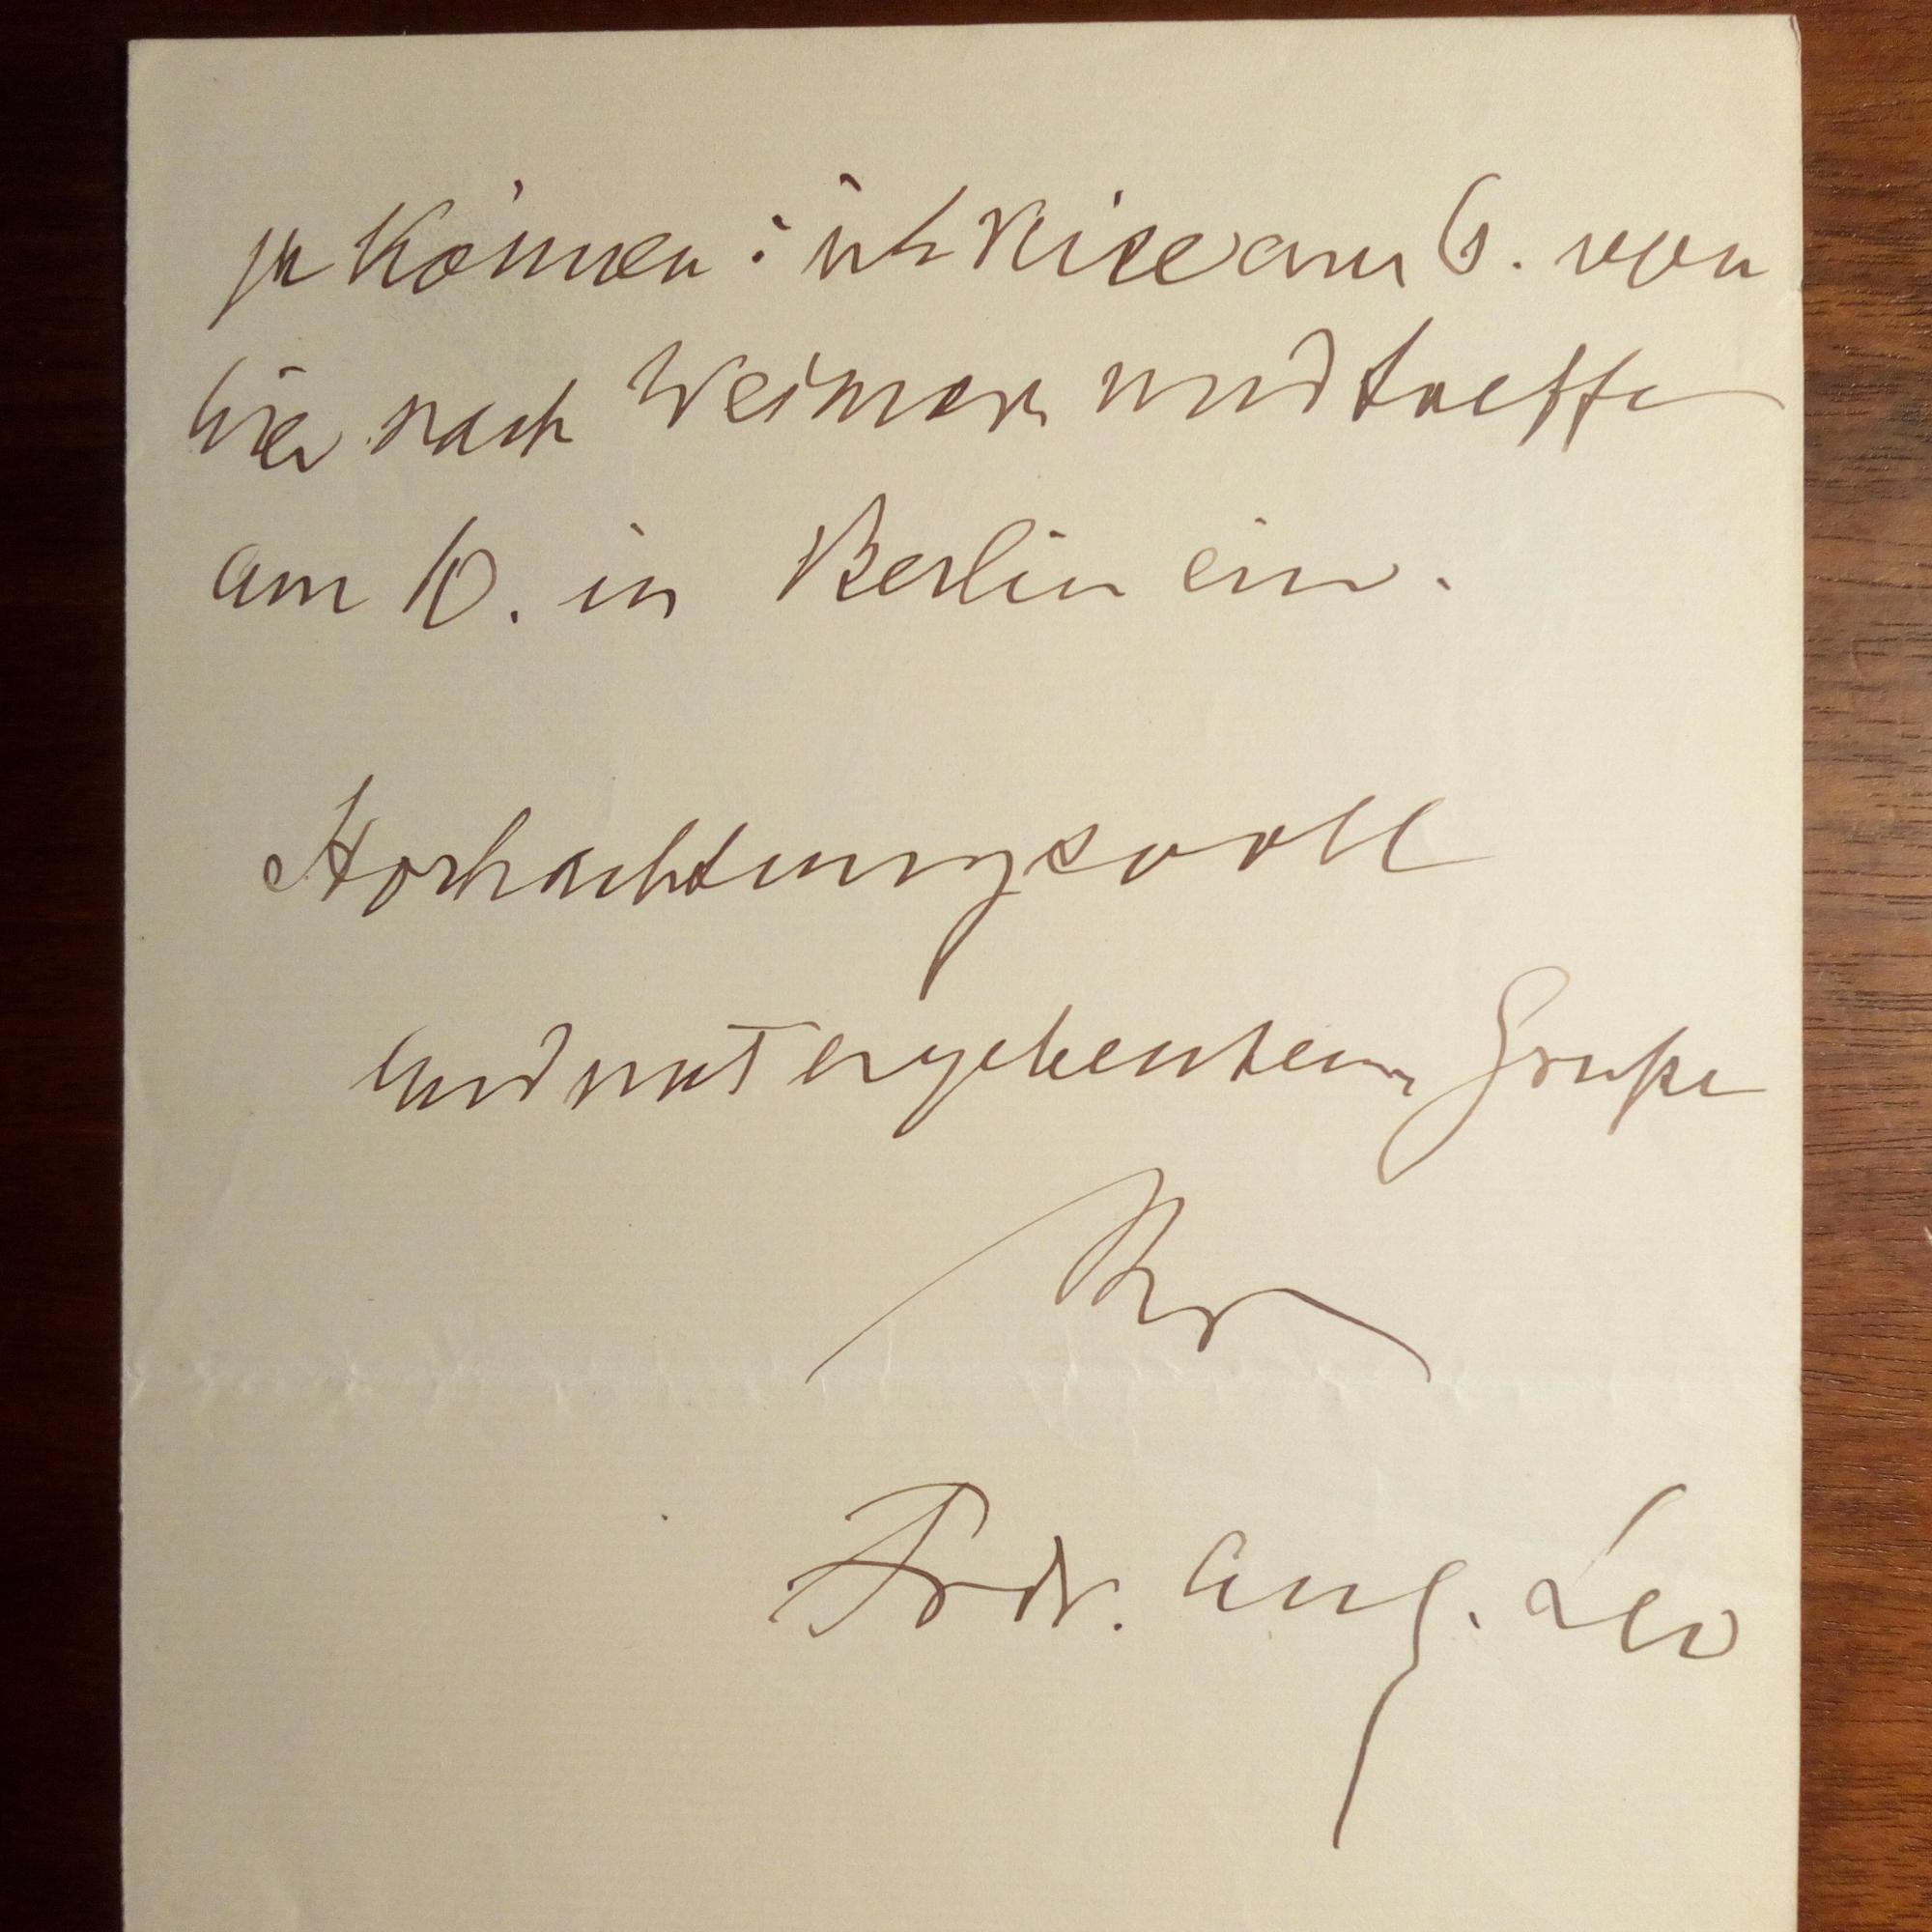 zu können: ich reise am 6. von
hier nach Weimar und treffe
am 10. in Berlin ein.
Hochachtungsvoll
und mit ergebenstem Gruße
Ihr
Frdr. Aug. Leo